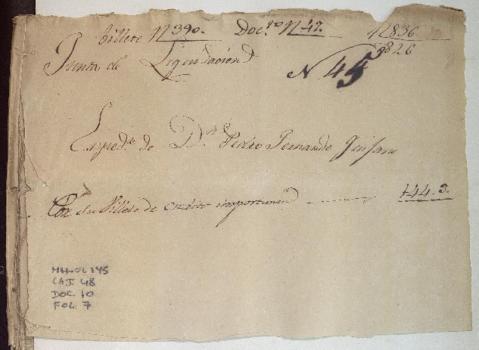 Billete N 390. Doc.to N 47. N 836
Junta de Liquidacion 826
N 45
Exped.te de D.n Pedro Fernando
Por su Billete de credito importante 144.3.
MH-OL 145
CAJ 48
DOC 10
FOL 7